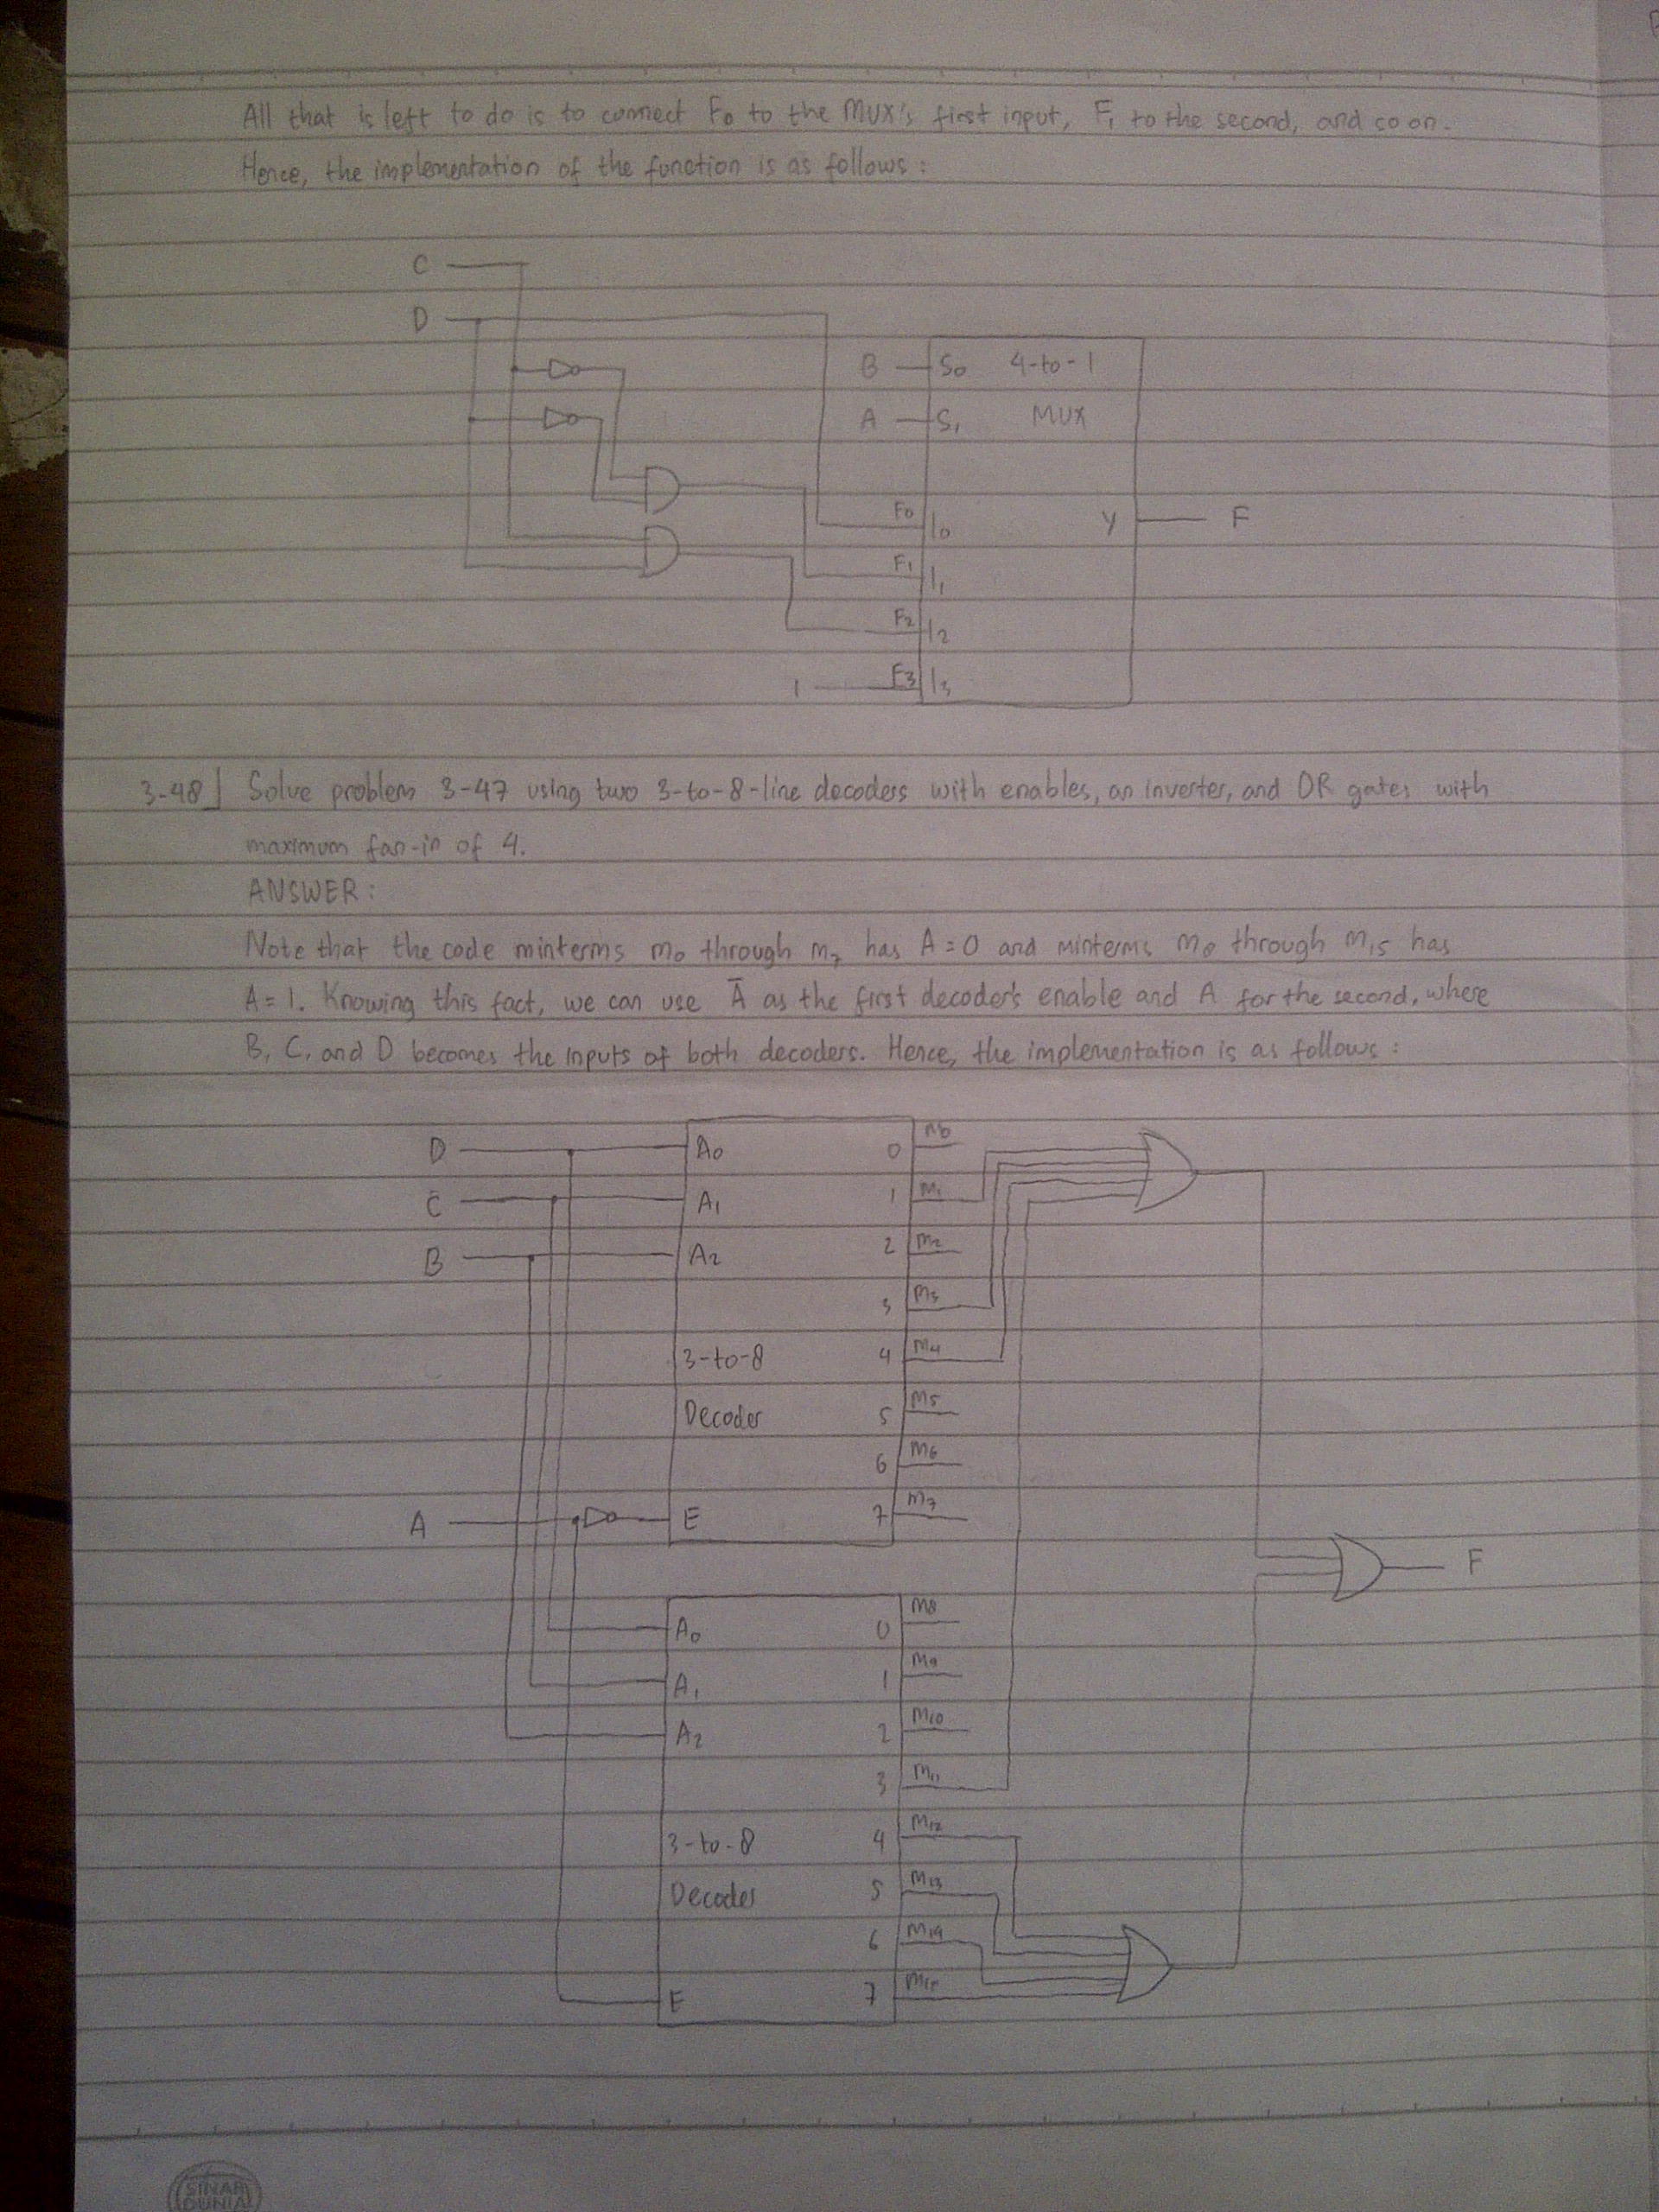 All that is left to do is to connect F0 to the MUX's first input, F1 to the second, and so on.
Hence, the implementation of the function is as follows :
C
D
B S0 4-to-1
A S1 MUX
F0 I0 Y F
F1 I1
F2 I2
1 F3 I3
3-48 Solve problem 3-47 using two 3-to-8-line decoders with enables, an inverter, and OR gates with
maximum fan-in of 4.
ANSWER :
Note that the code minterms m0 through m7 has A = 0 and minterms m8 through m15 has
A = 1. Knowing this fact, we can use Ā as the first decoder's enable and A for the second, where
B, C, and D becomes the inputs of both decoders. Hence, the implementation is as follows :
D A0 0 m0
C A1 1 m1
B A2 2 m2
3 m3
3-to-8 4 m4
Decoder 5 m5
6 m6
A E 7 m7
F
A0 0 m8
A1 1 m9
A2 2 m10
3 m11
3-to-8 4 m12
Decoder 5 m13
6 m14
E 7 m15
SINAR
DUNIA